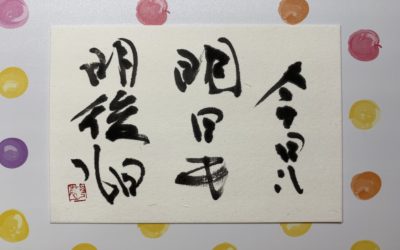 今日も
明日も
明後日も